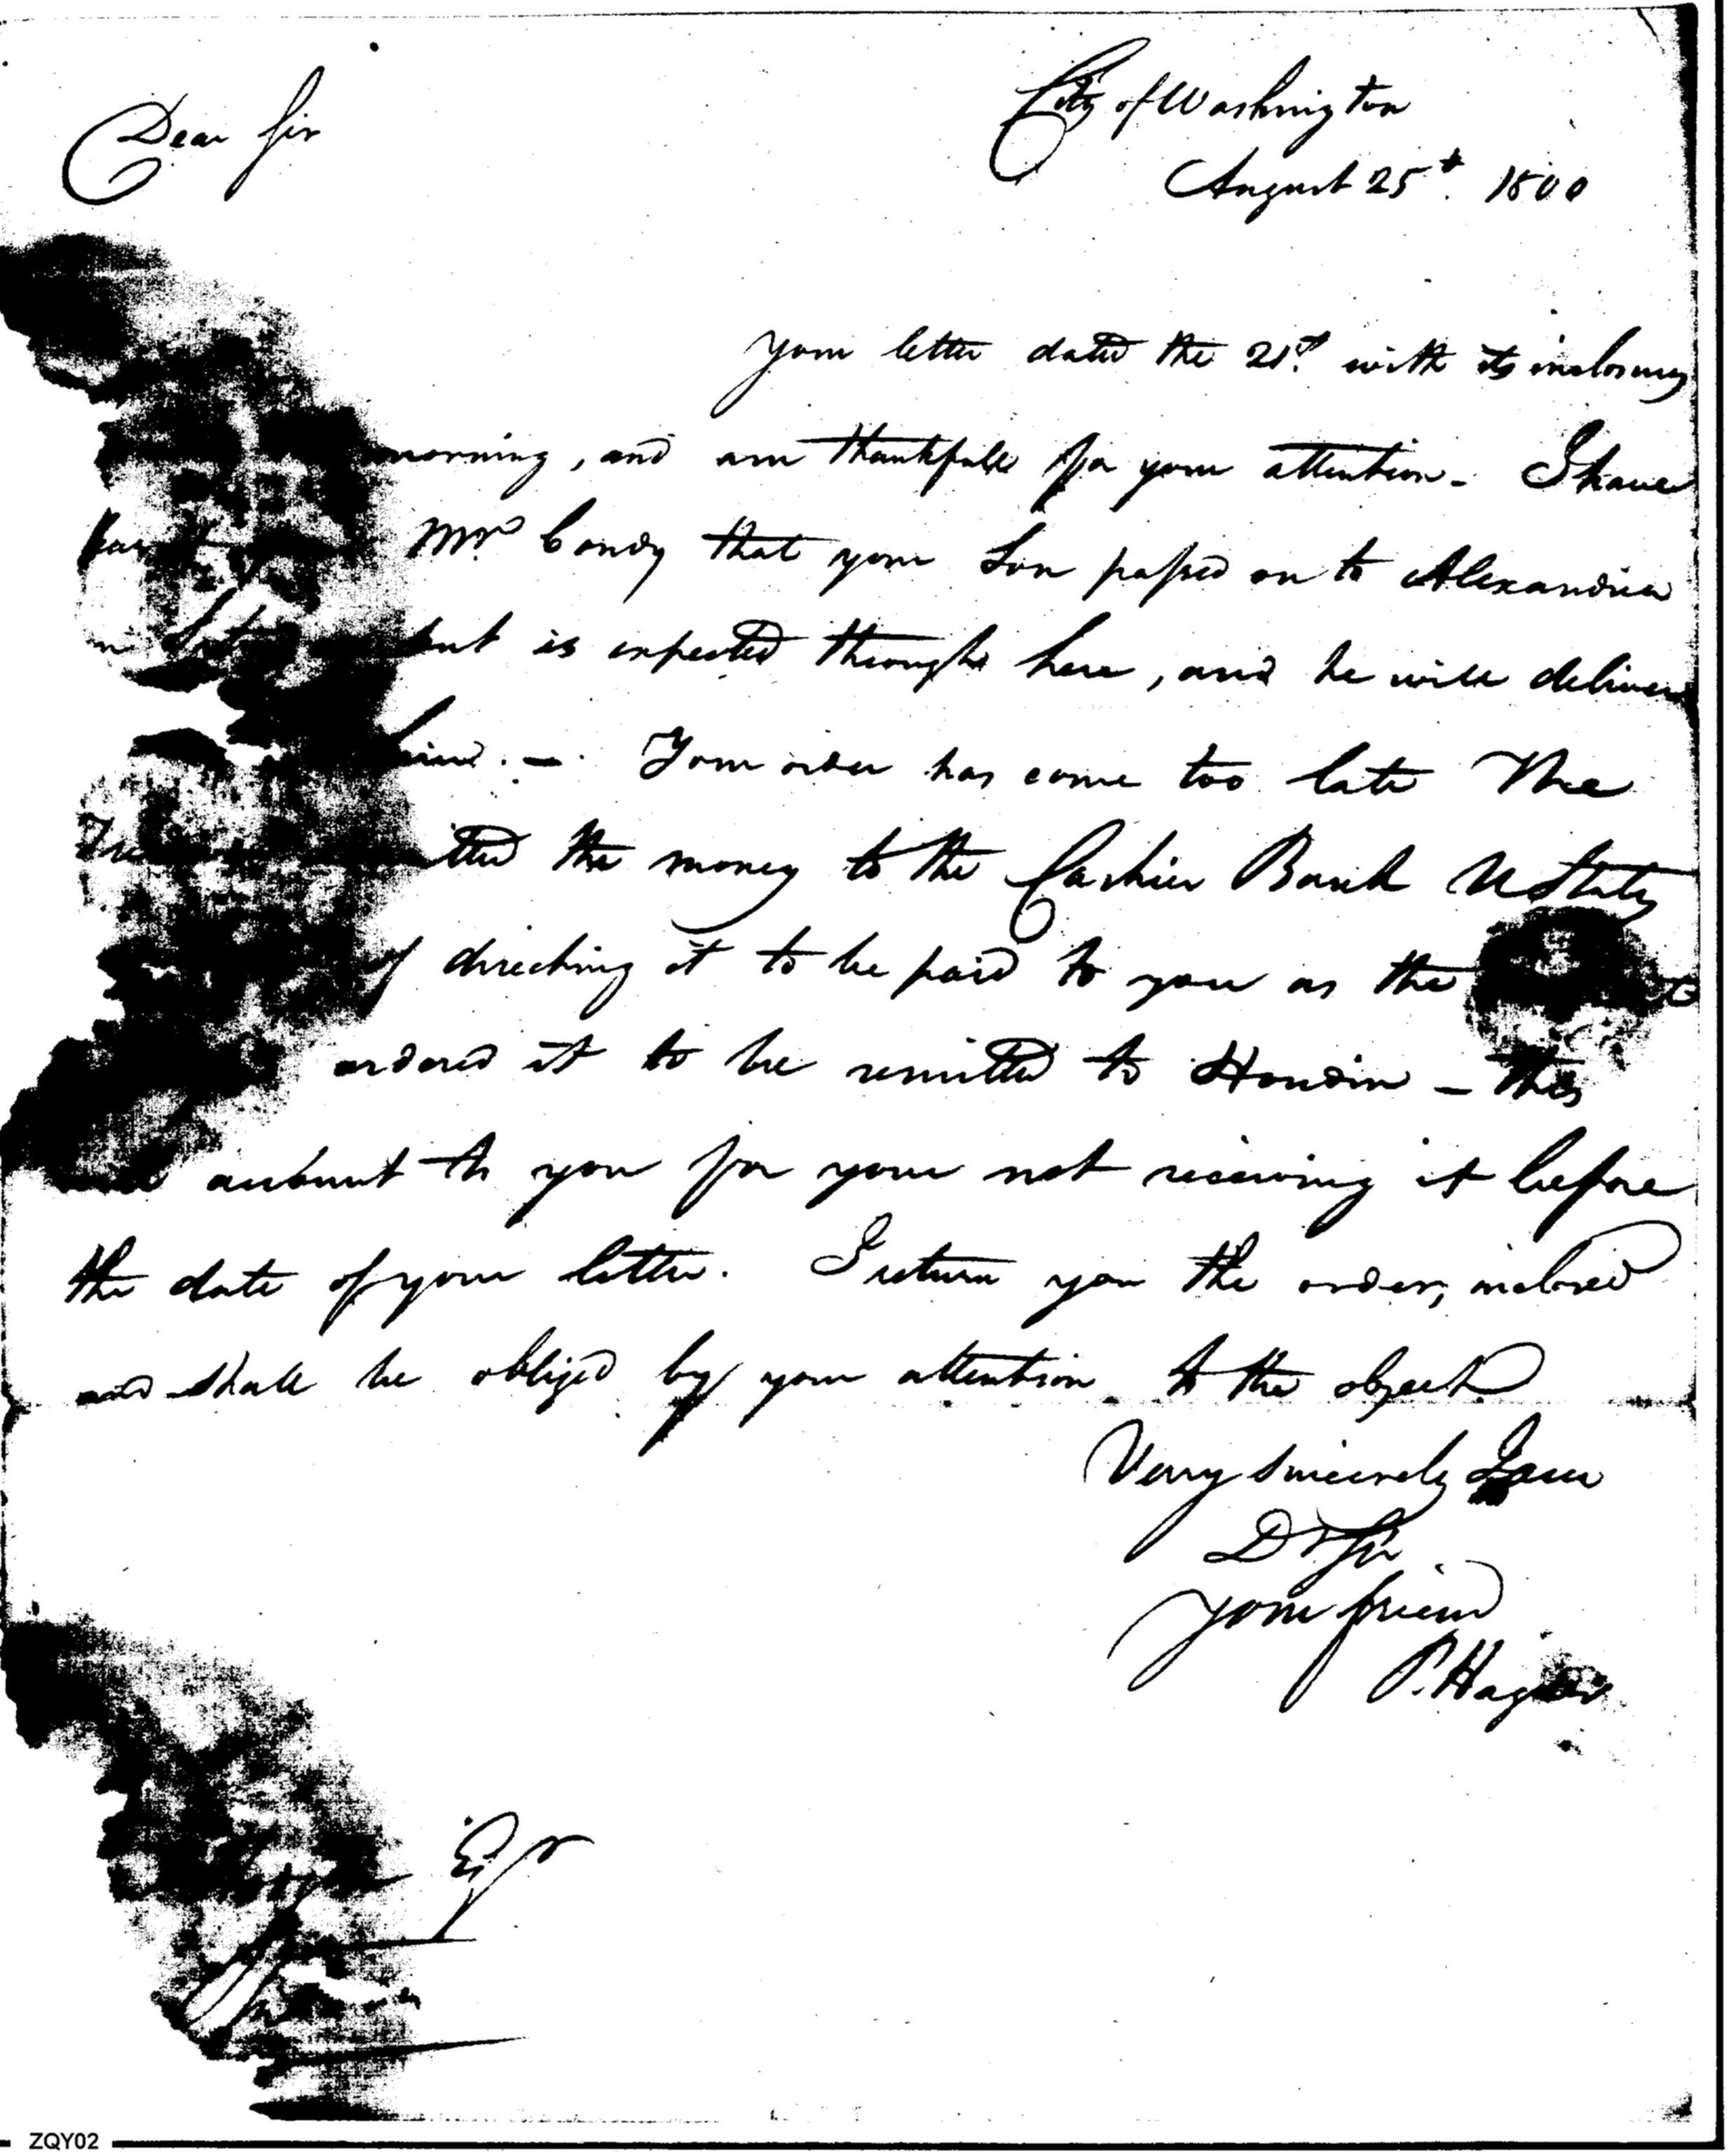 Dear Sir
City of Washington
August 25t. 1800
Your letter dated the 21st. with its inclosures
morning, and am thankfull for your attention - I have
Mr Condy that your Son passed on to Alexandria
but is expected through here, and he will deliver
him. - Your order has come too late The
the money to the Cashier Bank U States
directing it to be paid to you as the
ordered it to be remitted to Houdin - this
account to you for your not receiving it before
the date of your letter. I return you the order, inclosed
and shall be obliged by your attention to the object
Very sincerely I am
Dr Sir
your friend
P. Hagner
Esqr
ZQY02